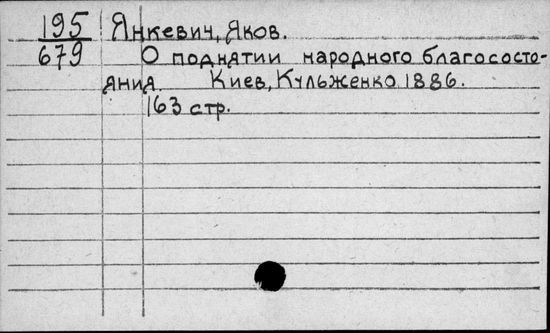 195 Янкевич, Яков.
679 О поднятии народного благососто-
яния. Киев, Кульженко, 1886.
163 стр.